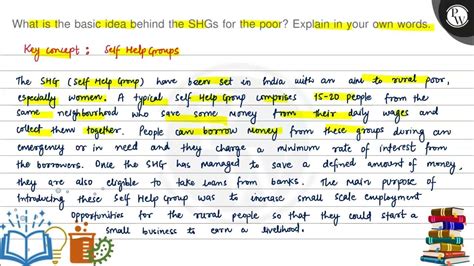 What is the basic idea behind the SHGs for the poor? Explain in your own words.
PW
Key concept : Self Help Groups
The SHG (Self Help Group) have been set in India with an aim to rural poor,
especially women. A typical Self Help Group comprises 15-20 people from the
same neighbourhood who save some money from their daily wages and
collect them together. People can borrow money from these groups during an
emergency or in need and they charge a minimum rate of interest from
the borrowers. Once the SHG has managed to save a defined amount of money,
they are also eligible to take loans from banks. The main purpose of
introducing these Self Help Group was to increase small scale employment
opportunities for the rural people so that they could start a
small business to earn a livelihood.